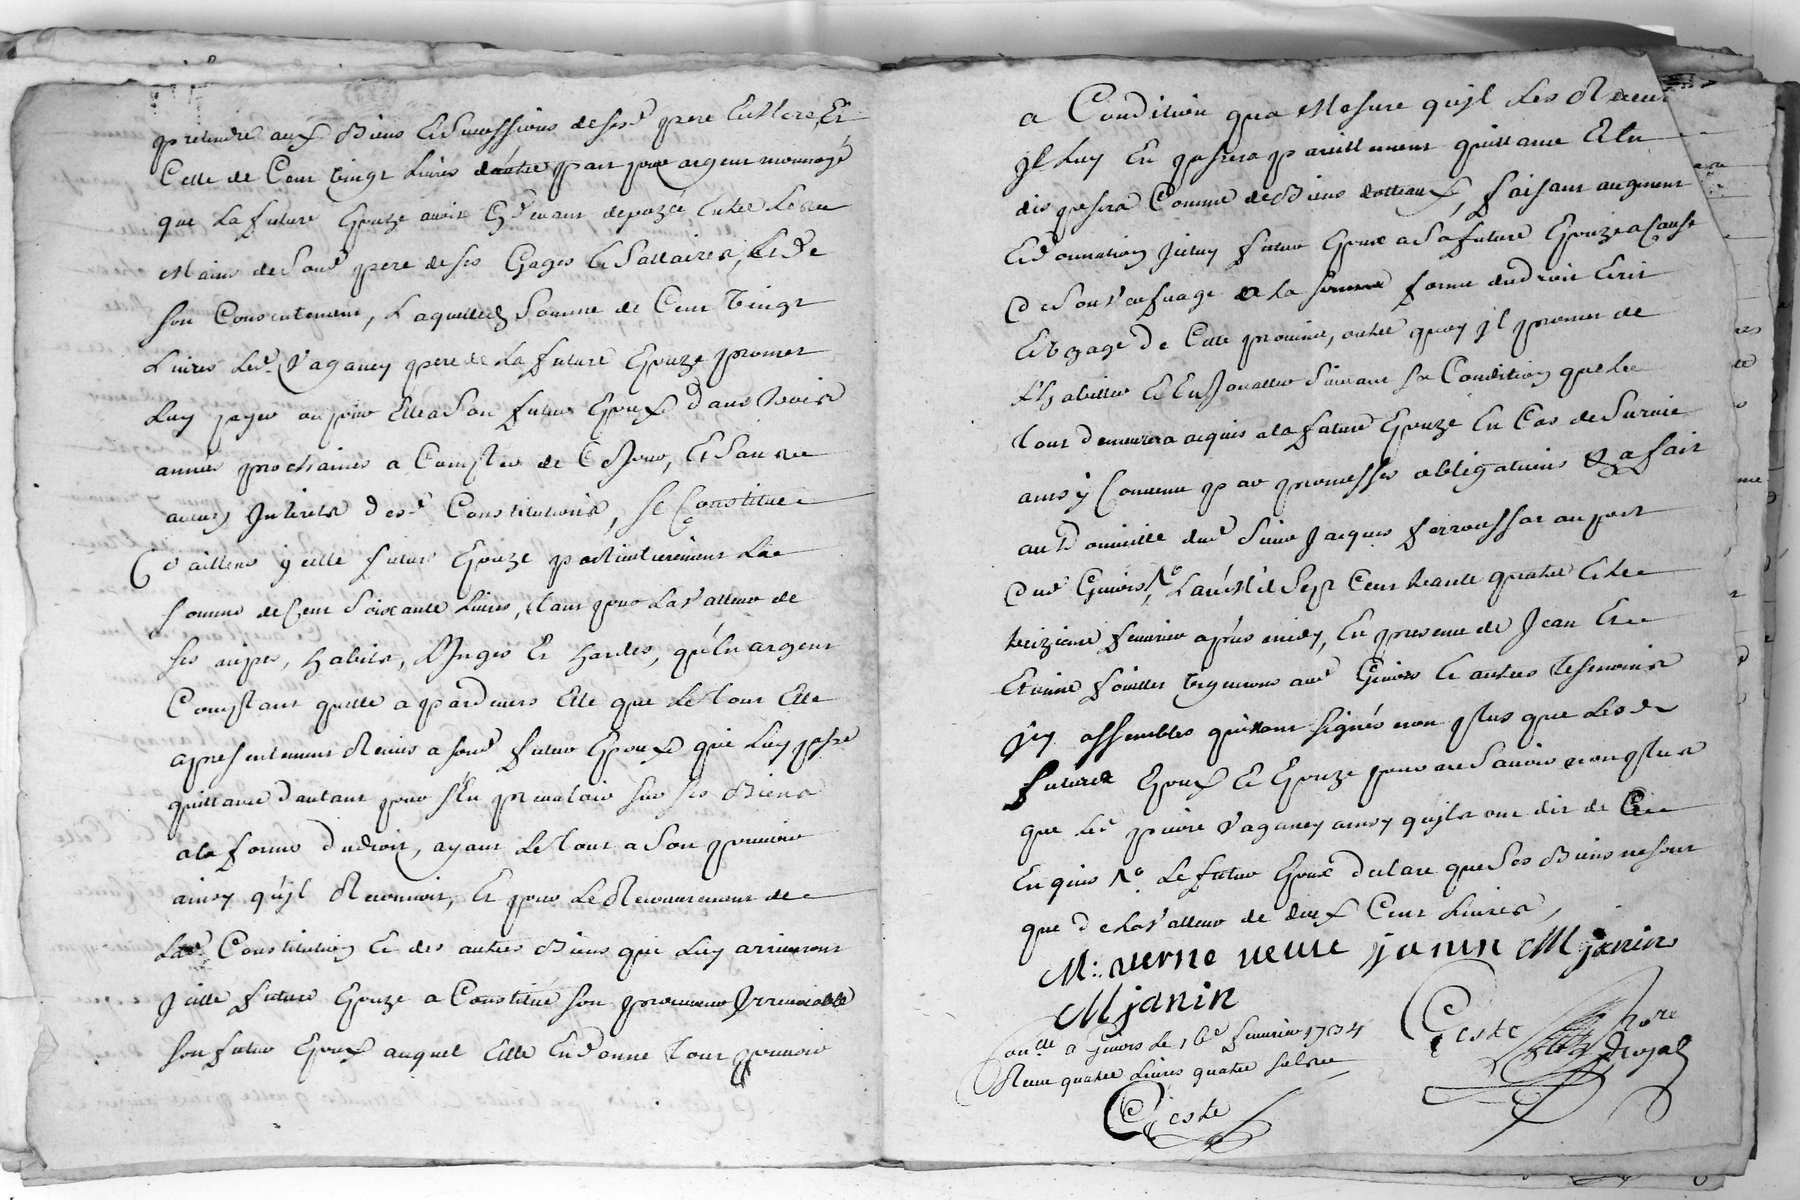 pretendre aux Biens et successions de sesd pere et mere, Et
Celle de Cent vingt Livres d'autre part pour argent monnoyé
que La future Epouze avoit cy devant depozée Entre Les
Mains de Sond pere de ses Gages et Sallaires, et de
son Consentement, Laquelle Somme de Cent Vingt
Livres Led Vaganey pere de La future Epouze promet
Luy payer ou pour Elle a Son futur Epoux dans trois
années prochaines a Compter de Ce Jour, Et Sans
aucun Interets desd Constitutions, se Constitue
d'ailleurs ycelle future Epouze particulierement La
somme de Cent Soixante Livres, tant pour La Valleur de
ses nipes, habits, Linges Et hardes, qu'En argent
Comptant quelle a pardevers Elle que Le tout Elle
a presentement Remis a sond futur Epoux qui Luy passe
quittance d'autant pour s'En prevaloir sur ses Biens
a la forme du droit, ayant Le tout a Son pouvoir
ainsy qu'yl Reconnoit, Et pour Le Recouvrement de
Lad Constitution Et des autres Biens qui Luy arriveront
Icelle future Epouze a Constitué son procureur Irrevocable
son futur Epoux auquel Elle En donne tout pouvoir
a Condition qua Mesure qu'yl Les
yl Luy En passera pareillement quittance Et En
disposera Comme de Biens dotteaux, faisant augment
Et donnation Iceluy futur Epoux a Sa future Epouze a Cause
de Son Veufuage a La forme du droit Ecrit
Et Uzage de Cette province, outre quoy yl promet de
L'habiller Et Enjoualler Suivant Sa Condition que Le
tout demeurera acquis a la future Epouze En Cas de Survie
ainsy Convenu par promesses obligations & a fait
au Domicille dud Sieur Jacques ferroussat au port
dud Givors, L'an Mil Sept Cent trante quatre Et Le
treizieme fevrier après midy, En presence de Jean Et
Etienne vignerons aud Givors Et autres tesmoins
Icy assemblés qui n'ont signés non plus que Lesd
futurs Epoux Et Epouze pour ne Savoir non plus
que Led pierre Vaganey ainsy qu'yls ont dit de Ce
Enquis Le futur Epoux declare que Ses Biens ne sont
que de La Valleur de deux Cent Livres,
M: verne veuve janin M janin
M janin
Con.lle a Givors Le 16e fevrier 1734
Receu quatre Livres quatre sols
Ceste
Ceste No.re Royal